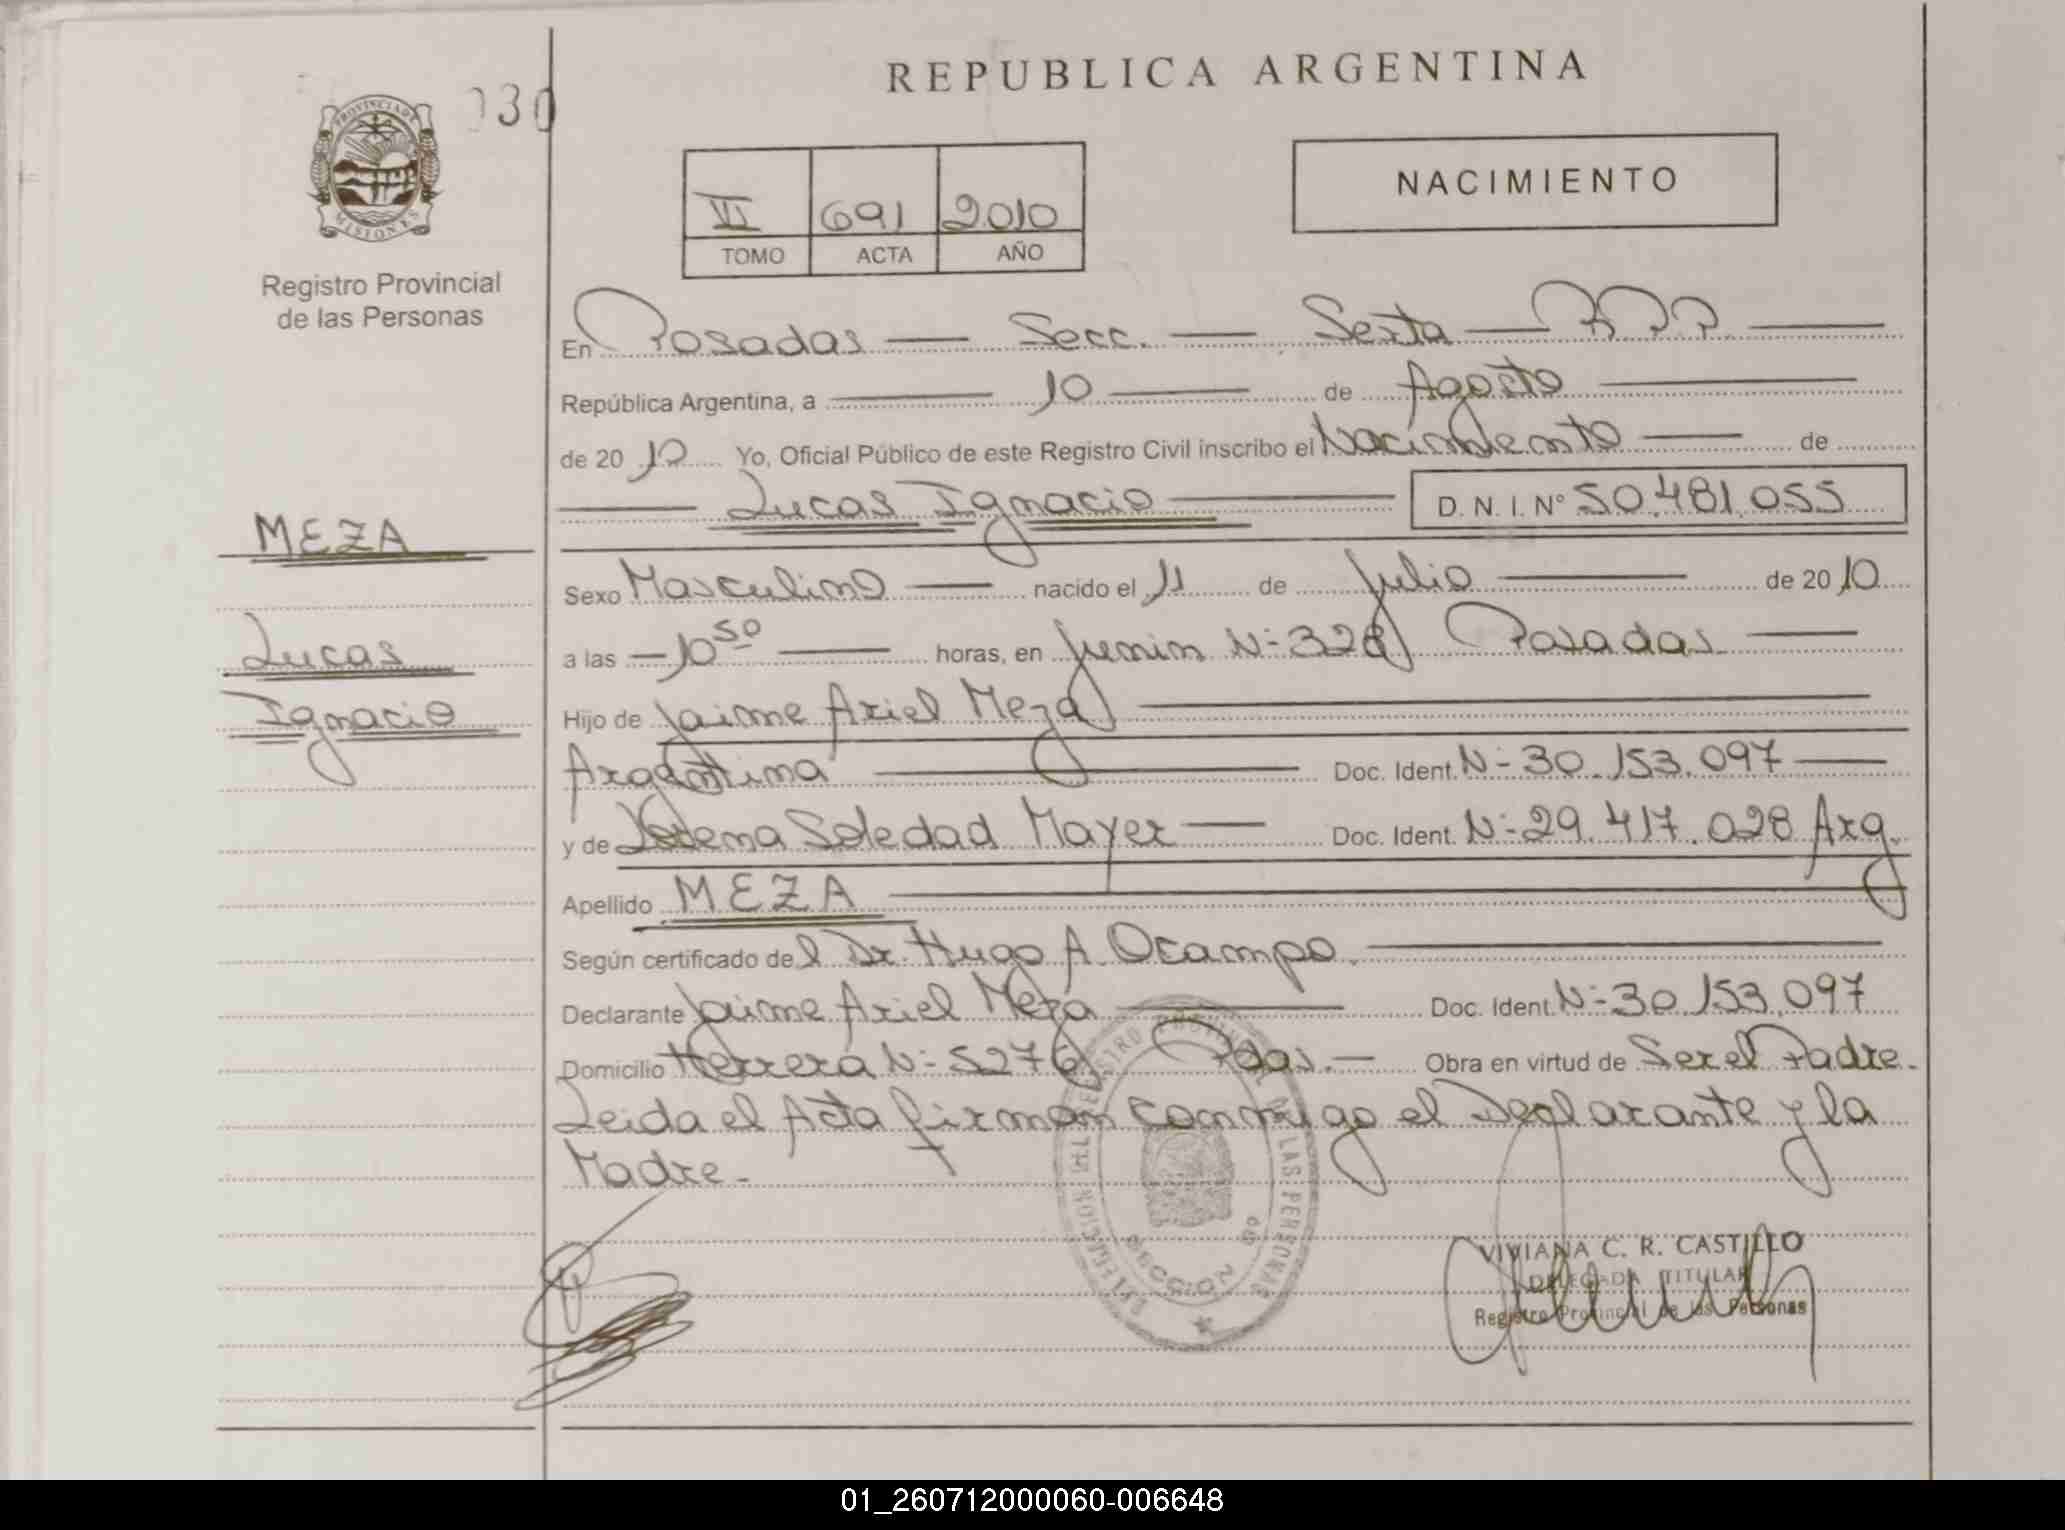 REPUBLICA ARGENTINA
030
PROVINCIA DE MISIONES
Registro Provincial
de las Personas
VI 691 2010
TOMO ACTA AÑO
NACIMIENTO
En Posadas — Secc. — Sexta — R.P.P. —
República Argentina, a — 10 — de Agosto —
de 2010 Yo, Oficial Público de este Registro Civil inscribo el Nacimiento — de
— Lucas Ignacio — D. N. I. Nº 50.481.055
MEZA
Lucas
Ignacio
Sexo Masculino — nacido el 11 de Julio — de 2010
a las — 10 50 — horas, en Junin N- 328 Posadas —
Hijo de Jaime Ariel Meza —
Argentina — Doc. Ident. N- 30.153.097 —
y de Soledad Mayer — Doc. Ident. N- 29.417.028 Arg.
Apellido MEZA —
Según certificado del Dr. Hugo A. Ocampo. —
Declarante Jaime Ariel Meza — Doc. Ident. N- 30.153.097
Domicilio Herrera N- 5276 Pdas. — Obra en virtud de Ser el Padre.
Leida el Acta firman conmigo el Declarante y la
Madre.-
REGISTRO PROVINCIAL DE LAS PERSONAS
SECCION 6º
VIVIANA C. R. CASTILLO
DELEGADA TITULAR
Registro Provincial de las Personas
01_260712000060-006648